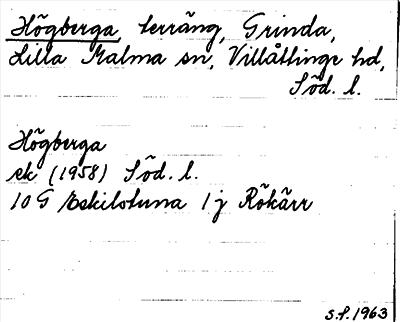 Högberga, terräng, Grinda,
Lilla Malma sn, Villåttinge hd,
Söd. l.
Högberga
ek (1958) Söd. l.
10 G Eskilstuna 1 j Rökärr
S.P. 1963